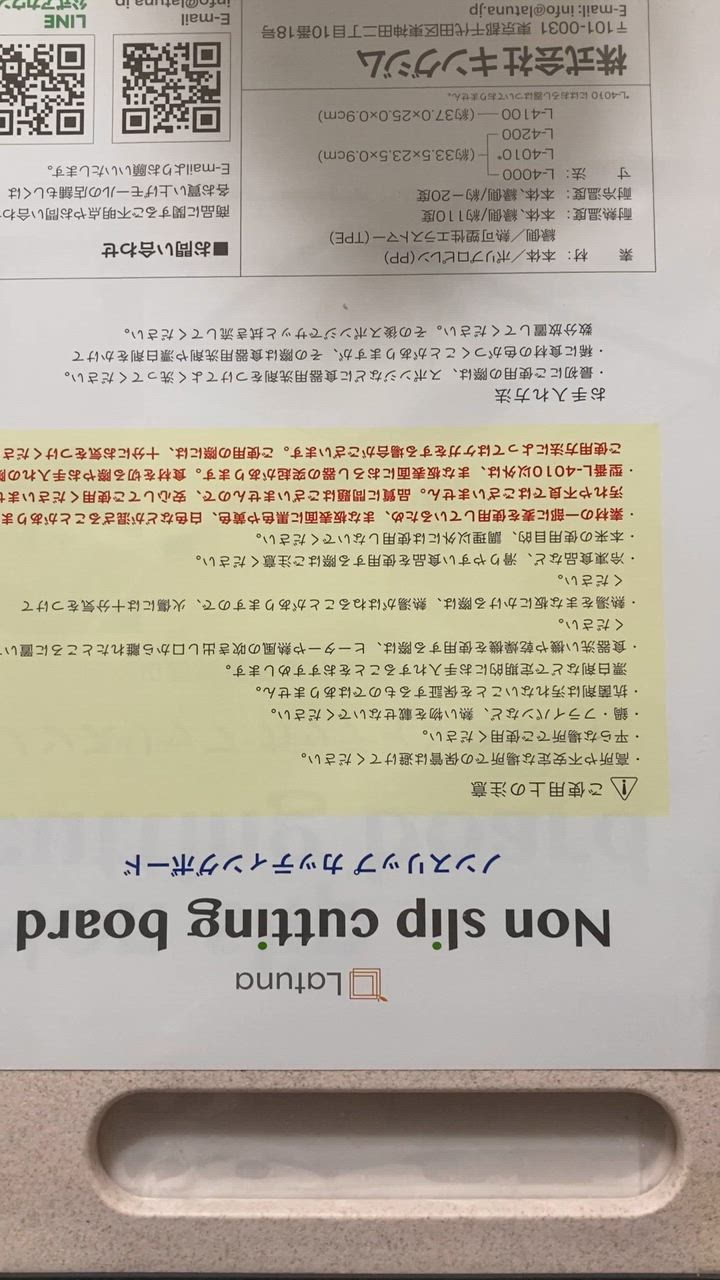 Latuna
Non slip cutting board
ノンスリップ カッティングボード
ご使用上の注意
・高所や不安定な場所での保管は避けてください。
・平らな場所でご使用ください。
・鍋・フライパンなど、熱い物を載せないでください。
・抗菌剤は汚れないことを保証するものではありません。
漂白剤などで定期的にお手入れすることをおすすめします。
・食器洗い機や乾燥機を使用する際は、ヒーターや熱風の吹き出し口から離れたところに置い
ください。
・熱湯をまな板にかける際は、熱湯がはねることがありますので、火傷には十分気をつけて
ください。
・冷凍食品など、滑りやすい食品を使用する際はご注意ください。
・本来の使用目的、調理以外には使用しないでください。
・素材の一部に麦を使用しているため、まな板表面に黒色や黄色、白色などが混ざることがありま
汚れや不良ではございません。品質に問題はございませんので、安心してご使用くださいませ
・型番L-4010以外は、まな板表面におろし器の突起があります。食材を切る際やお手入れの際
ご使用方法によってはケガをする場合がございます。ご使用の際には、十分にお気をつけくださ
お手入れ方法
・最初にご使用の際は、スポンジなどに食器用洗剤をつけてよく洗ってください。
・稀に食材の色がつくことがありますが、その際は食器用洗剤や漂白剤をかけて
数分放置してください。その後スポンジでサッと拭き流してください。
素　材：本体／ポリプロピレン(PP)
縁側／熱可塑性エラストマー(TPE)
耐熱温度：本体、縁側/約110度
耐冷温度：本体、縁側/約−20度
寸　法：L-4000
L-4010* (約33.5×23.5×0.9cm)
L-4200
L-4100 (約37.0×25.0×0.9cm)
*L-4010 にはおろし器はついておりません。
株式会社キングジム
〒101-0031 東京都千代田区東神田二丁目10番18号
E-mail: info@latuna.jp
■お問い合わせ
商品に関するご不明点やお問い合わ
各お買い上げモールの店舗もしくは
E-mailよりお願いいたします。
E-mail
info@latuna.jp
LINE
公式アカウン